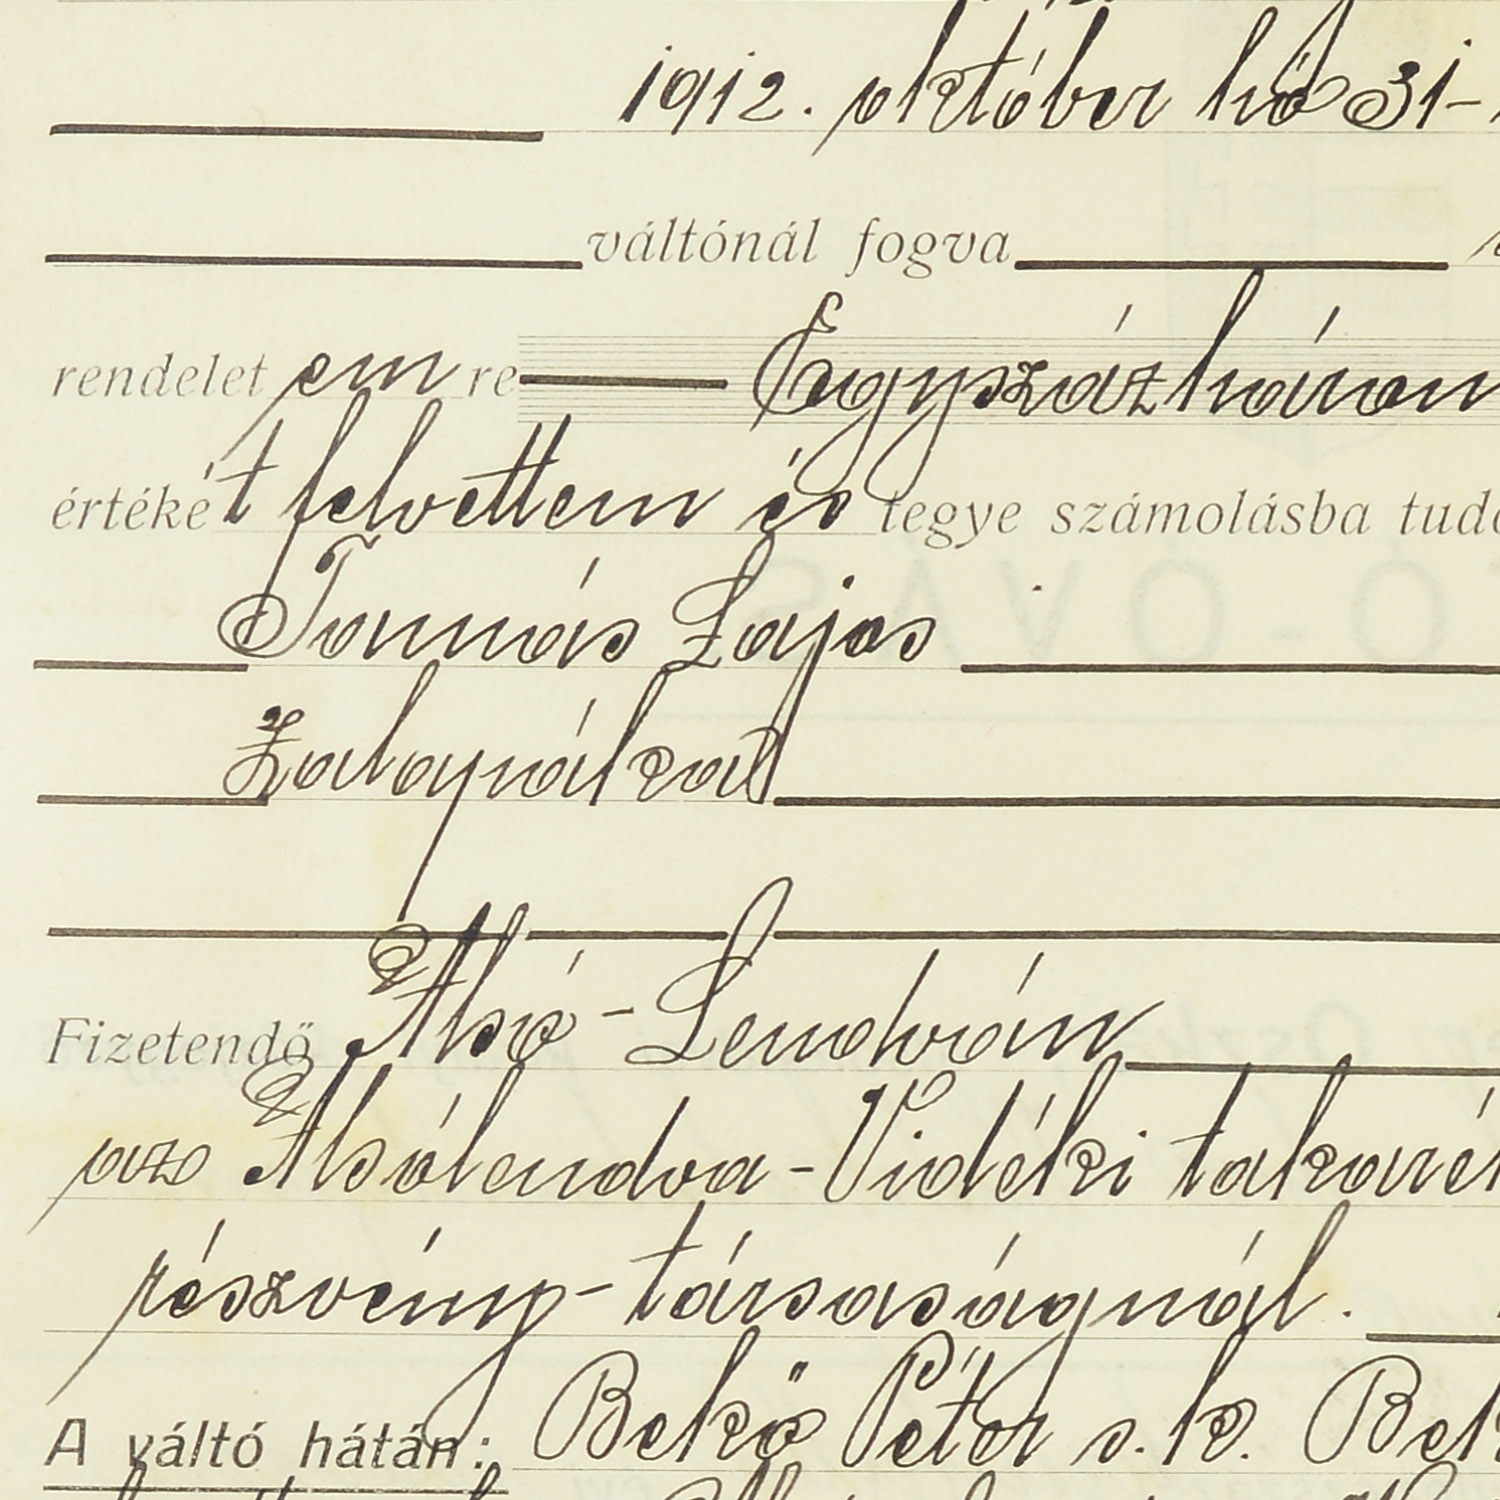 1912. október hó 31-
váltónál fogva
rendelet em re Egyszázhárom
értékét felvettem és tegye számolásba
Tamás Lajos
Fizetendő Alsó-Lendván
az Alsólendva-Vidéki takaré
részvény-társaságnál.
A váltó hátán: Bekő Péter s. k.